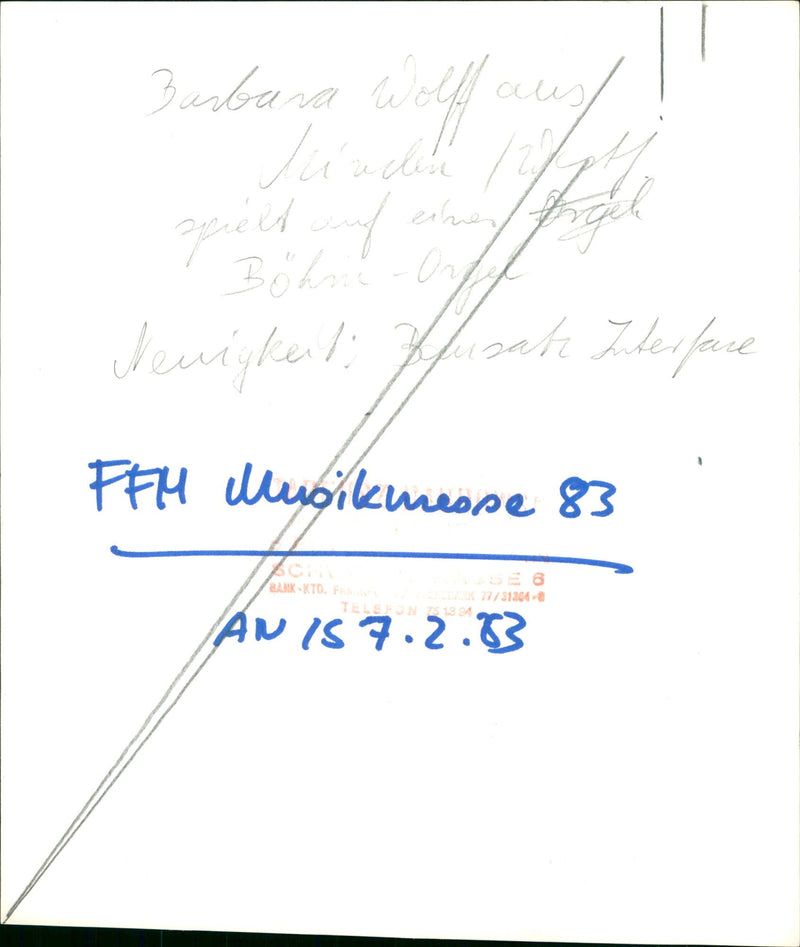 Barbara Wolff aus
Minden / Westf
spielt auf einer Orgel
Böhm - Orgel
Neuigkeit: Bausatz Interface
FFM Musikmesse 83
SCH 6
BANK-KTO. 77/31304-8
TELEFON 75 13 94
AN IS 7.2.83